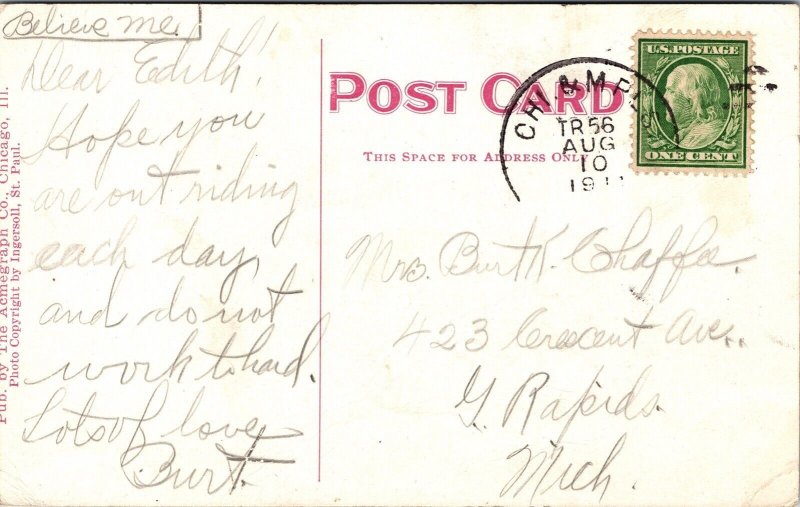 Believe me.
Dear Edith!
Hope you
are out riding
each day,
and do not
work to hard.
Lots of love
Burt.
Pub. by The Acmegraph Co., Chicago, Ill.
Photo Copyright by Ingersoll, St. Paul.
POST CARD
THIS SPACE FOR ADDRESS ONLY
CHI. & MPLS
TR 56
AUG
10
1911
U.S. POSTAGE
ONE CENT
Mrs. Burt K. Chaffee.
423 Crescent Ave..
G. Rapids.
Mich.